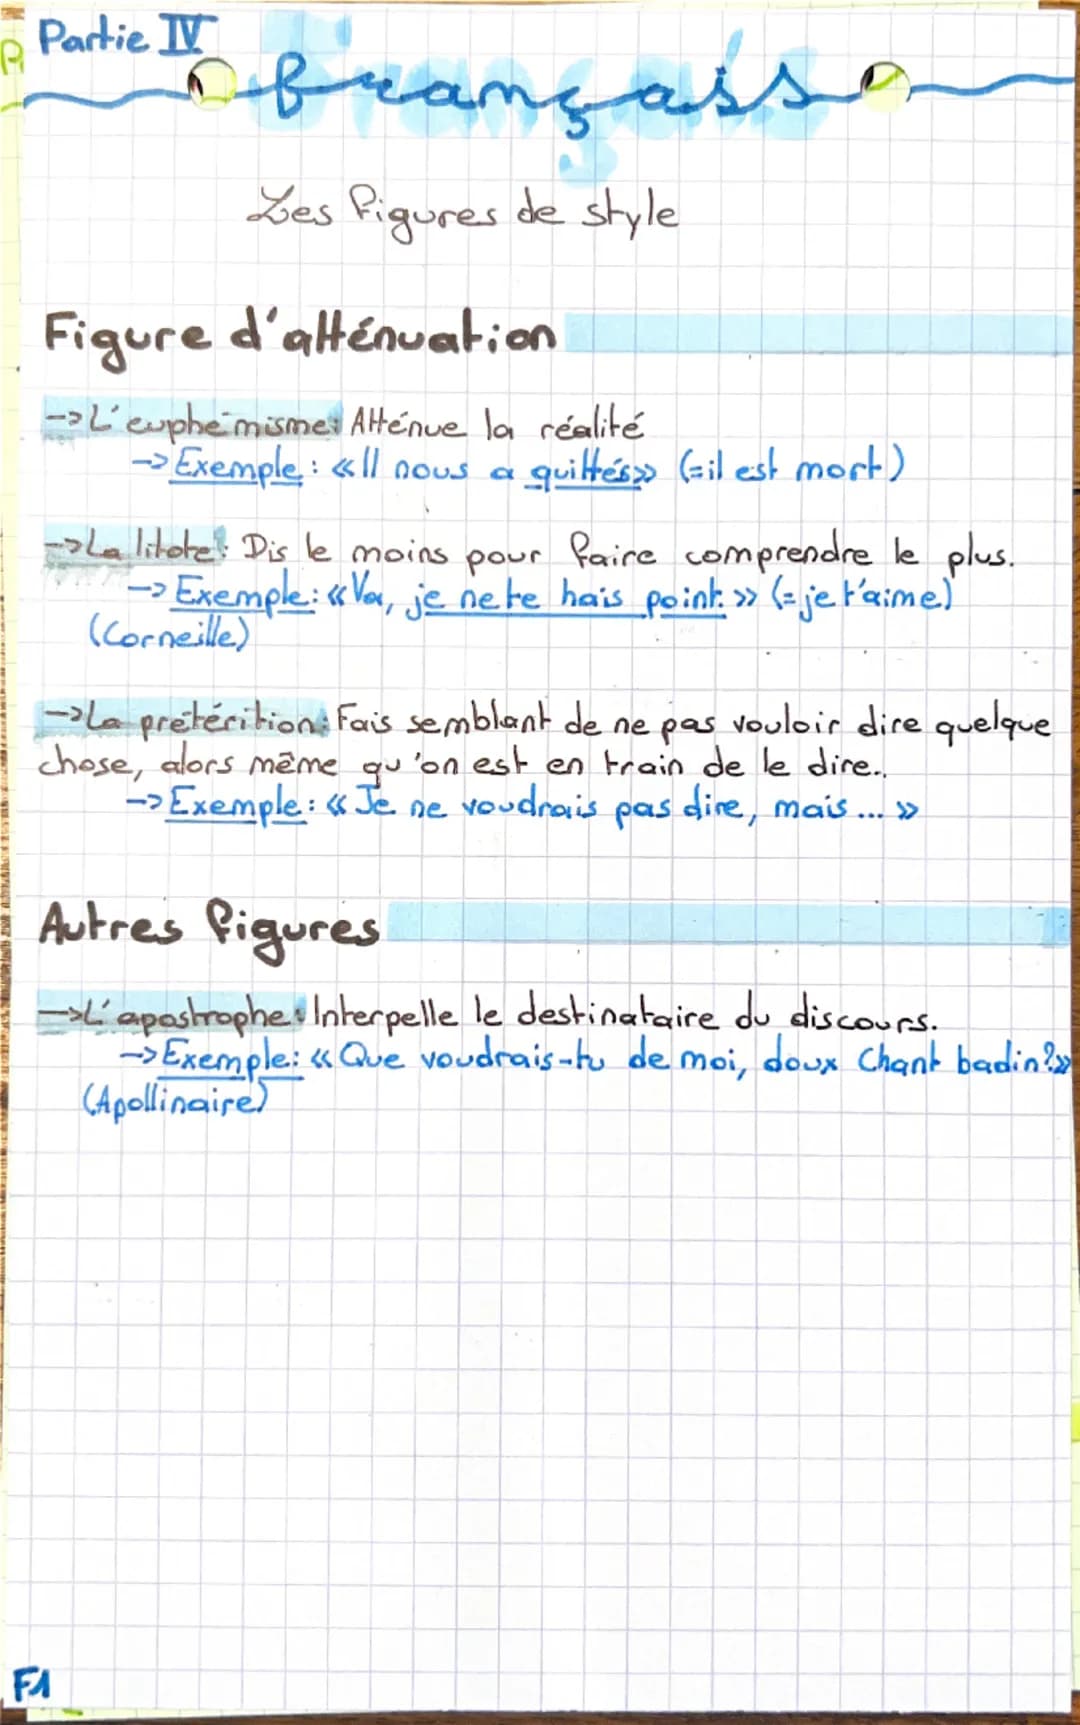 Partie IV
Français
Les figures de style
Figure d'atténuation
->L'euphémisme: Atténue la réalité
->Exemple: «Il nous a quittés» (=il est mort)
->La litote: Dis le moins pour faire comprendre le plus.
->Exemple: «Va, je ne te hais point.» (=je t'aime)
(Corneille)
->La prétérition: Fais semblant de ne pas vouloir dire quelque
chose, alors même qu'on est en train de le dire..
->Exemple: «Je ne voudrais pas dire, mais...»
Autres figures
->L'apostrophe: Interpelle le destinataire du discours.
->Exemple: «Que voudrais-tu de moi, doux Chant badin?»
(Apollinaire)
F1